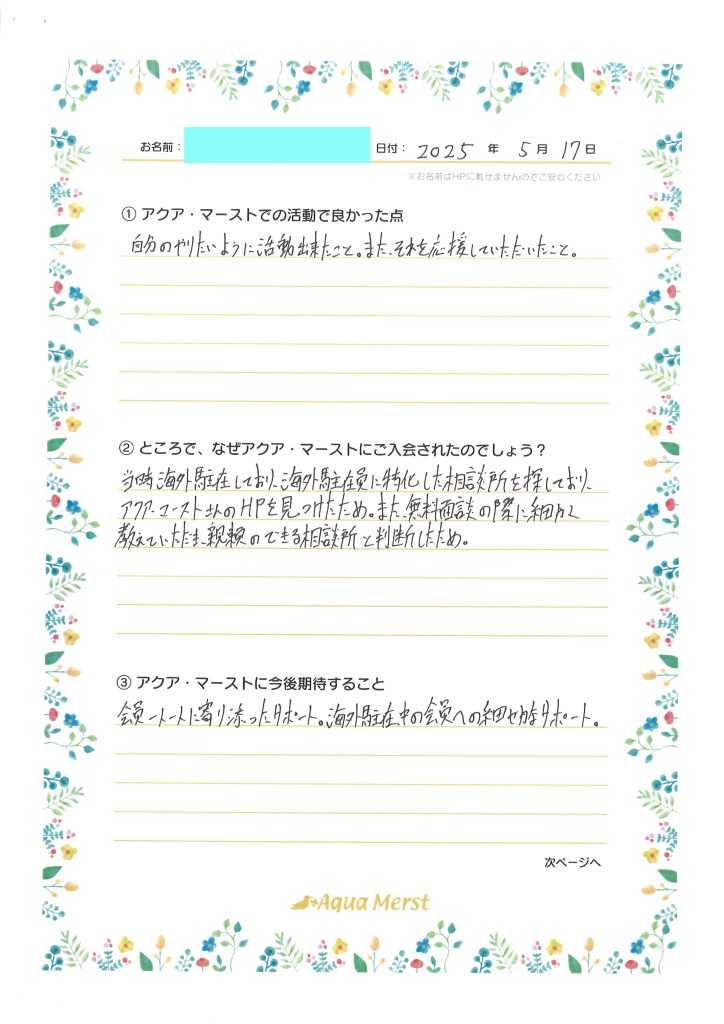 お名前： 日付： 2025 年 5 月 17 日
※お名前はHPに載せませんのでご安心ください
① アクア・マーストでの活動で良かった点
自分のやりたいように活動出来たこと。また、それを応援していただいたこと。
② ところで、なぜアクア・マーストにご入会されたのでしょう？
当時海外駐在しており、海外駐在員に特化した相談所を探しており、
アクア・マーストさんのHPを見つけたため。また、無料面談の際に細かく
教えていただき、親頼のできる相談所と判断したため。
③ アクア・マーストに今後期待すること
会員一人一人に寄り添ったサポート。海外駐在中の会員への細やかなサポート。
次ページへ
Aqua Merst